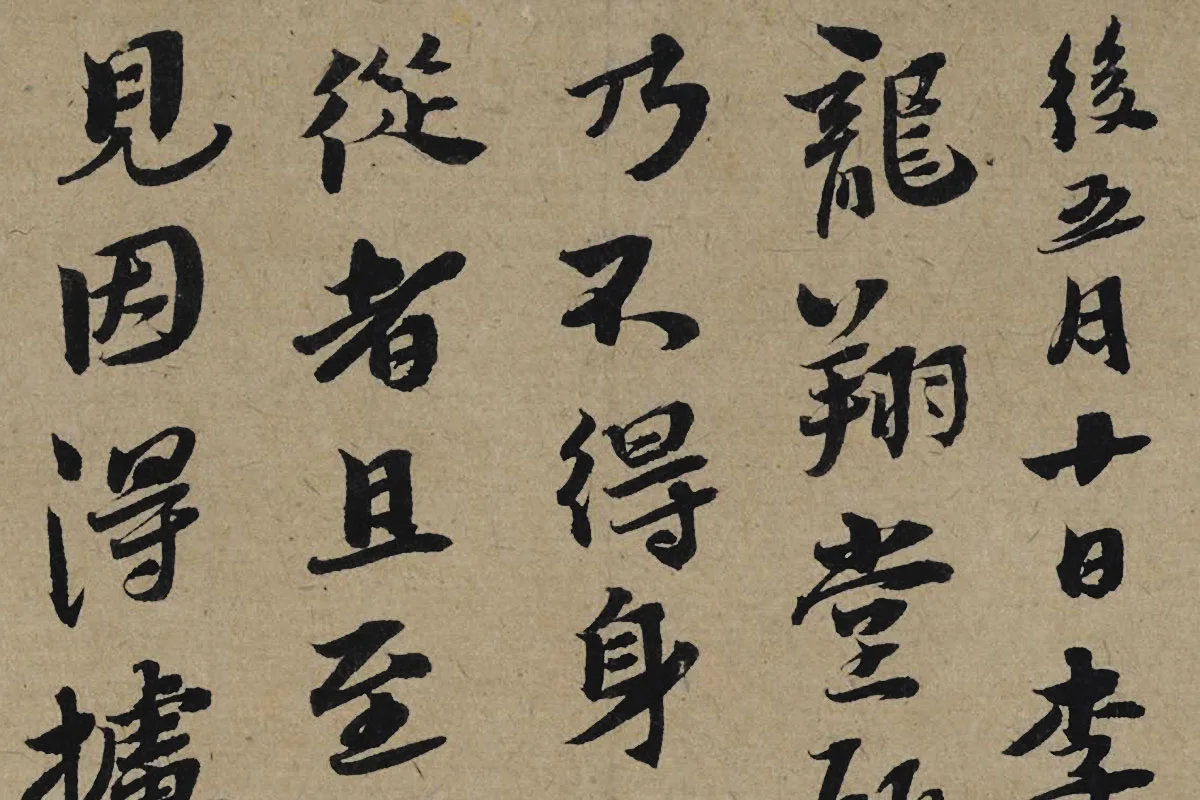 後五月十日李
龍翔堂
乃不得身
從者且至
見因得攄